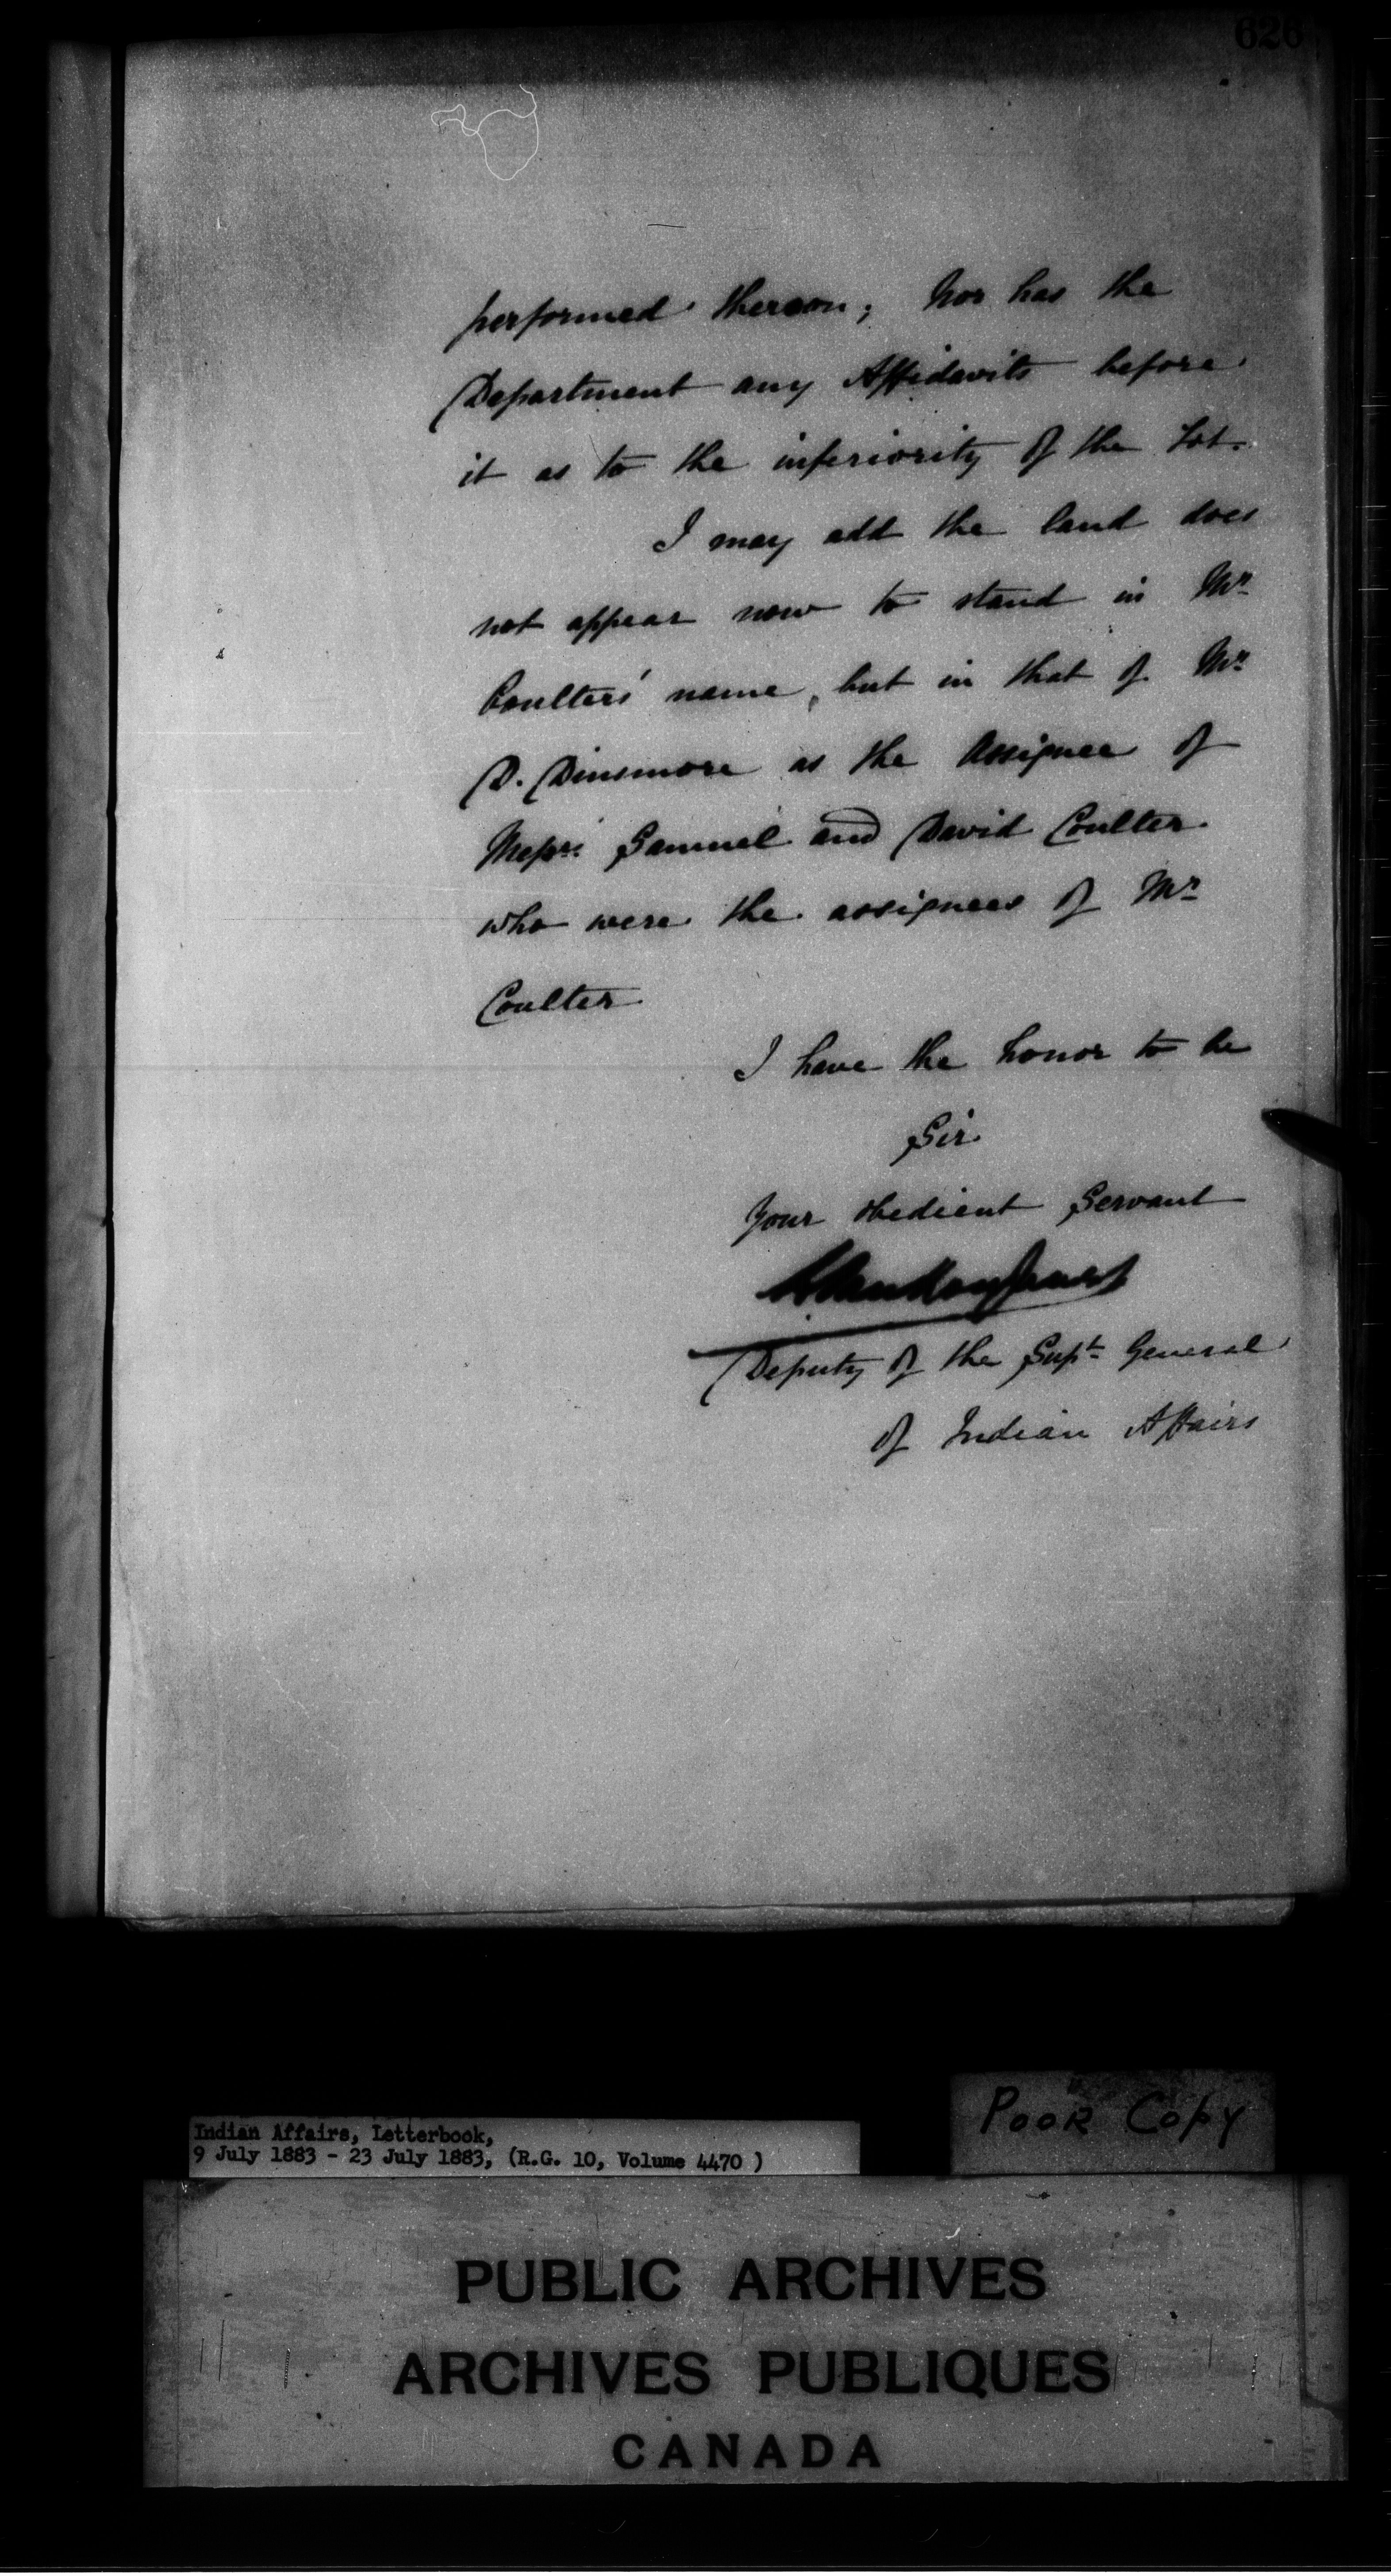 626
performed thereon; Nor has the
Department any Affidavits before
it as to the inferiority of the Lot.
I may add the land does
not appear now to stand in Mr
Coulters' name, but in that of Mr
D. Dinsmore as the Assignee of
Messrs Samuel and David Coulter
who were the assignees of Mr
Coulter
I have the honor to be
Sir
Your obedient Servant
Deputy of the Supt General
of Indian Affairs
Poor Copy
Indian Affairs, Letterbook,
9 July 1883 - 23 July 1883, (R.G. 10, Volume 4470 )
PUBLIC ARCHIVES
ARCHIVES PUBLIQUES
CANADA